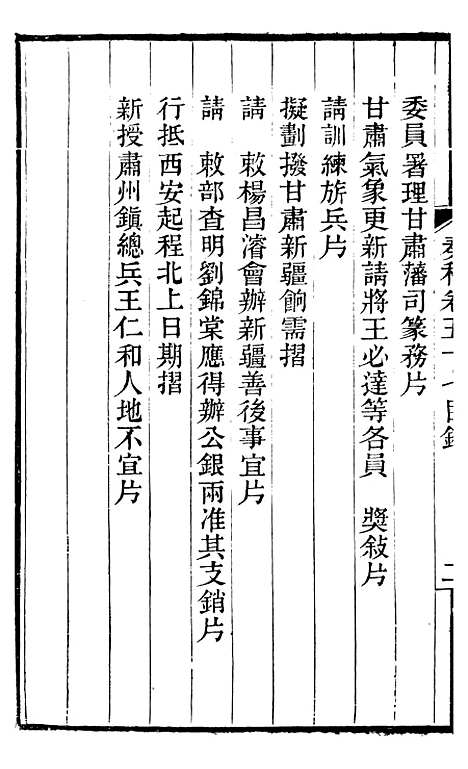 委員署理甘肅藩司篆務片
甘肅氣象更新請將王必達等各員　獎敍片
請訓練旂兵片
擬劃撥甘肅新疆餉需摺
請　敕楊昌濬會辦新疆善後事宜片
請　敕部查明劉錦棠應得辦公銀兩准其支銷片
行抵西安起程北上日期摺
新授肅州鎮總兵王仁和人地不宜片